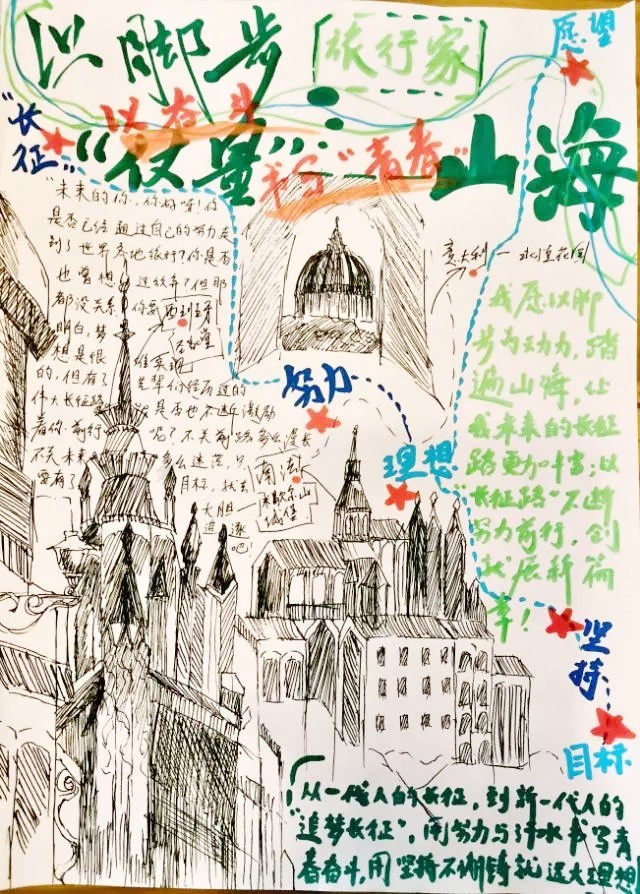 以脚步
旅行家
愿望
"长
征"
以奋斗
"仗量"
书写"青春"
山海
"未来的你，你好呀！你
是否已经通过自己的努力走
到了世界各地旅行？你是否
也曾想过放弃？但那
都没关系，你要
西班牙
明白，梦
想是很难实现
的，但有了先辈们经历过的
伟大长征路，是否也不断激励
着你前行呢？不关前路有多漫长
不关未来有多么迷茫，只
要有了目标，就去
大胆
追逐
吧！
南法
城堡
意大利——水湟花园
努力
理想
我愿以脚
步为动力，踏
遍山海，让
我未来的长征
路更加丰富；以
"长征路"不断
努力前行，创
就展新篇
章！
坚
持
目标
从一代人的长征，到新一代人的
"追梦长征"，用努力与汗水书写青
春奋斗，用坚持不懈铸就远大理想